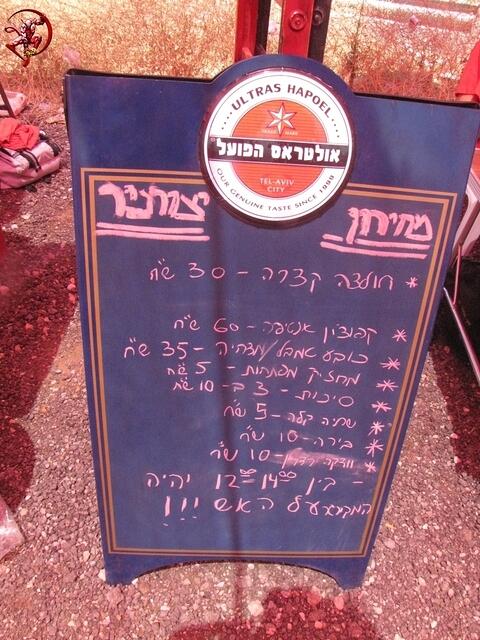 ULTRAS HAPOEL
TRADE MARK
אולטראס הפועל
TEL-AVIV
CITY
OUR GENUINE TASTE SINCE 1999
מחירון
* חולצה קצרה - 30 ש"ח
* קפוצ'ון אנטיפה - 60 ש"ח
* כובע אמבל/מצחיה - 35 ש"ח
* מחזיק מפתחות - 5 ש"ח
* סיכות - 3 ב-10 ש"ח
* שתיה קלה - 5 ש"ח
* בירה - 10 ש"ח
* וודקה - 10 ש"ח
- בין 12:00-14:00 יהיה
על האש !!!